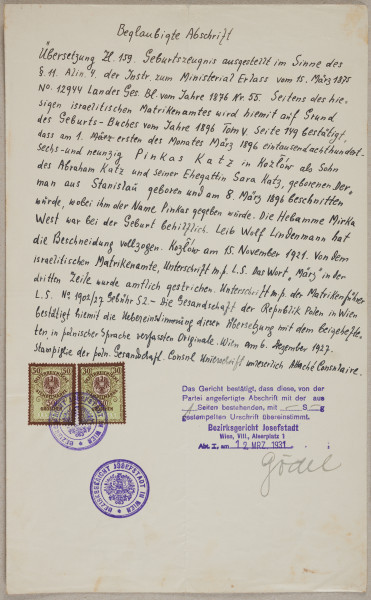 Beglaubigte Abschrift
Übersetzung Zl. 159. Geburtszeugnis ausgestellt im Sinne des
§. 11. Alin. 4. der Instr. zum Ministerial Erlass vom 15. März 1875
No. 12944 Landes Ges. Bl. vom Jahre 1876 Nr. 55. Seitens des hie-
sigen israelitischen Matrikenamtes wird hiemit auf Grund
des Geburts-Buches vom Jahre 1896 Tom V. Seite 149 bestätigt,
dass am 1. März ersten des Monates März 1896 eintausendachthundert-
sechs-und neunzig Pinkas Katz in Kozlów als Sohn
des Abraham Katz und seiner Ehegattin Sara Katz, geborenen Der-
man aus Stanislau geboren und am 8. März 1896 beschnitten
würde, wobei ihm der Name Pinkas gegeben würde. Die Hebamme Mirka
West war bei der Geburt behilflich. Leib Wolf Lindenmann hat
die Beschneidung vollzogen. Kozlów am 15. November 1921. Von dem
israelitischen Matrikenamte, Unterschrift m.p. L.S. Das Wort „März" in der
dritten Zeile wurde amtlich gestrichen. Unterschrift m.p. der Matrikenführer
L.S. No. 1901/27 Gebühr S2.- Die Gesandschaft der Republik Polen in Wien
bestätigt hiemit die Uebereinstimmung dieser Übersetzung mit dem beigehefte-
ten, in polnischer Sprache verfassten Originale. Wien am 6. Dezember 1927.
Stampiglie der poln. Gesandschaft. Consul Unterschrift unleserlich Attaché Consulaire.
50 50
Das Gericht bestätigt, dass diese, von der
Partei angefertigte Abschrift mit der aus
Seiten bestehenden, mit S g
gestempelten Urschrift übereinstimmt.
Bezirksgericht Josefstadt
Wien, VIII., Alserplatz 1
Abt. I, am 12. MRZ. 1931
Gödel
BEZIRKSGERICHT JOSEFSTADT IN WIEN
BEZIRKSGERICHT JOSEFSTADT IN WIEN